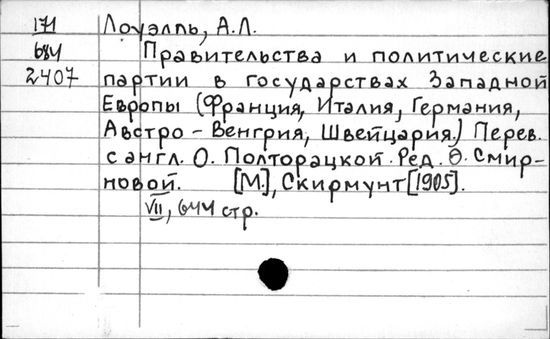 171 Лоуэлль, А.Л.
684 Правительства и политические
2407 партии в государствах Западной
Европы (Франция, Италия, Германия,
Австро-Венгрия, Швейцария.) Перев.
с англ. О. Полторацкой. Ред. Ѳ. Смир-
новой. [М.], Скирмунт [1905].
VII, 644 стр.